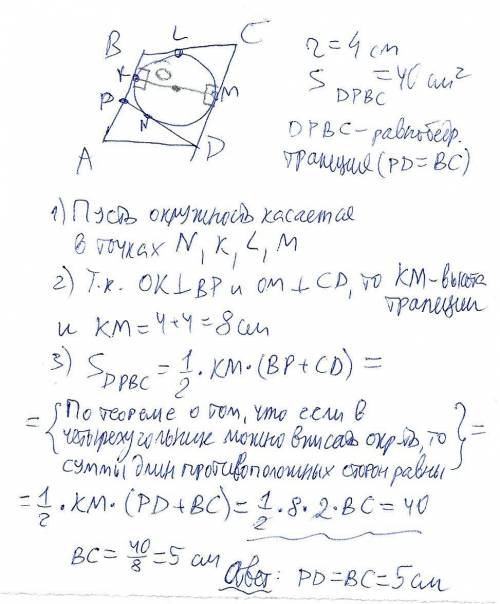 B L C
K O
P M
N
A D
r = 4 см
S DPBC = 40 см²
DPBC - равнобедр.
трапеция (PD = BC)
1) Пусть окружность касается
в точках N, K, L, M
2) Т.к. OK ⊥ BP и OM ⊥ CD, то KM - высота
трапеции
и KM = 4+4 = 8 см
3) S DPBC = 1/2 · KM · (BP + CD) =
= {По теореме о том, что если в
четырехугольник можно вписать окр-ть, то
суммы длин противоположных сторон равны} =
= 1/2 · KM · (PD + BC) = 1/2 · 8 · 2 · BC = 40
BC = 40/8 = 5 см
Ответ: PD = BC = 5 см